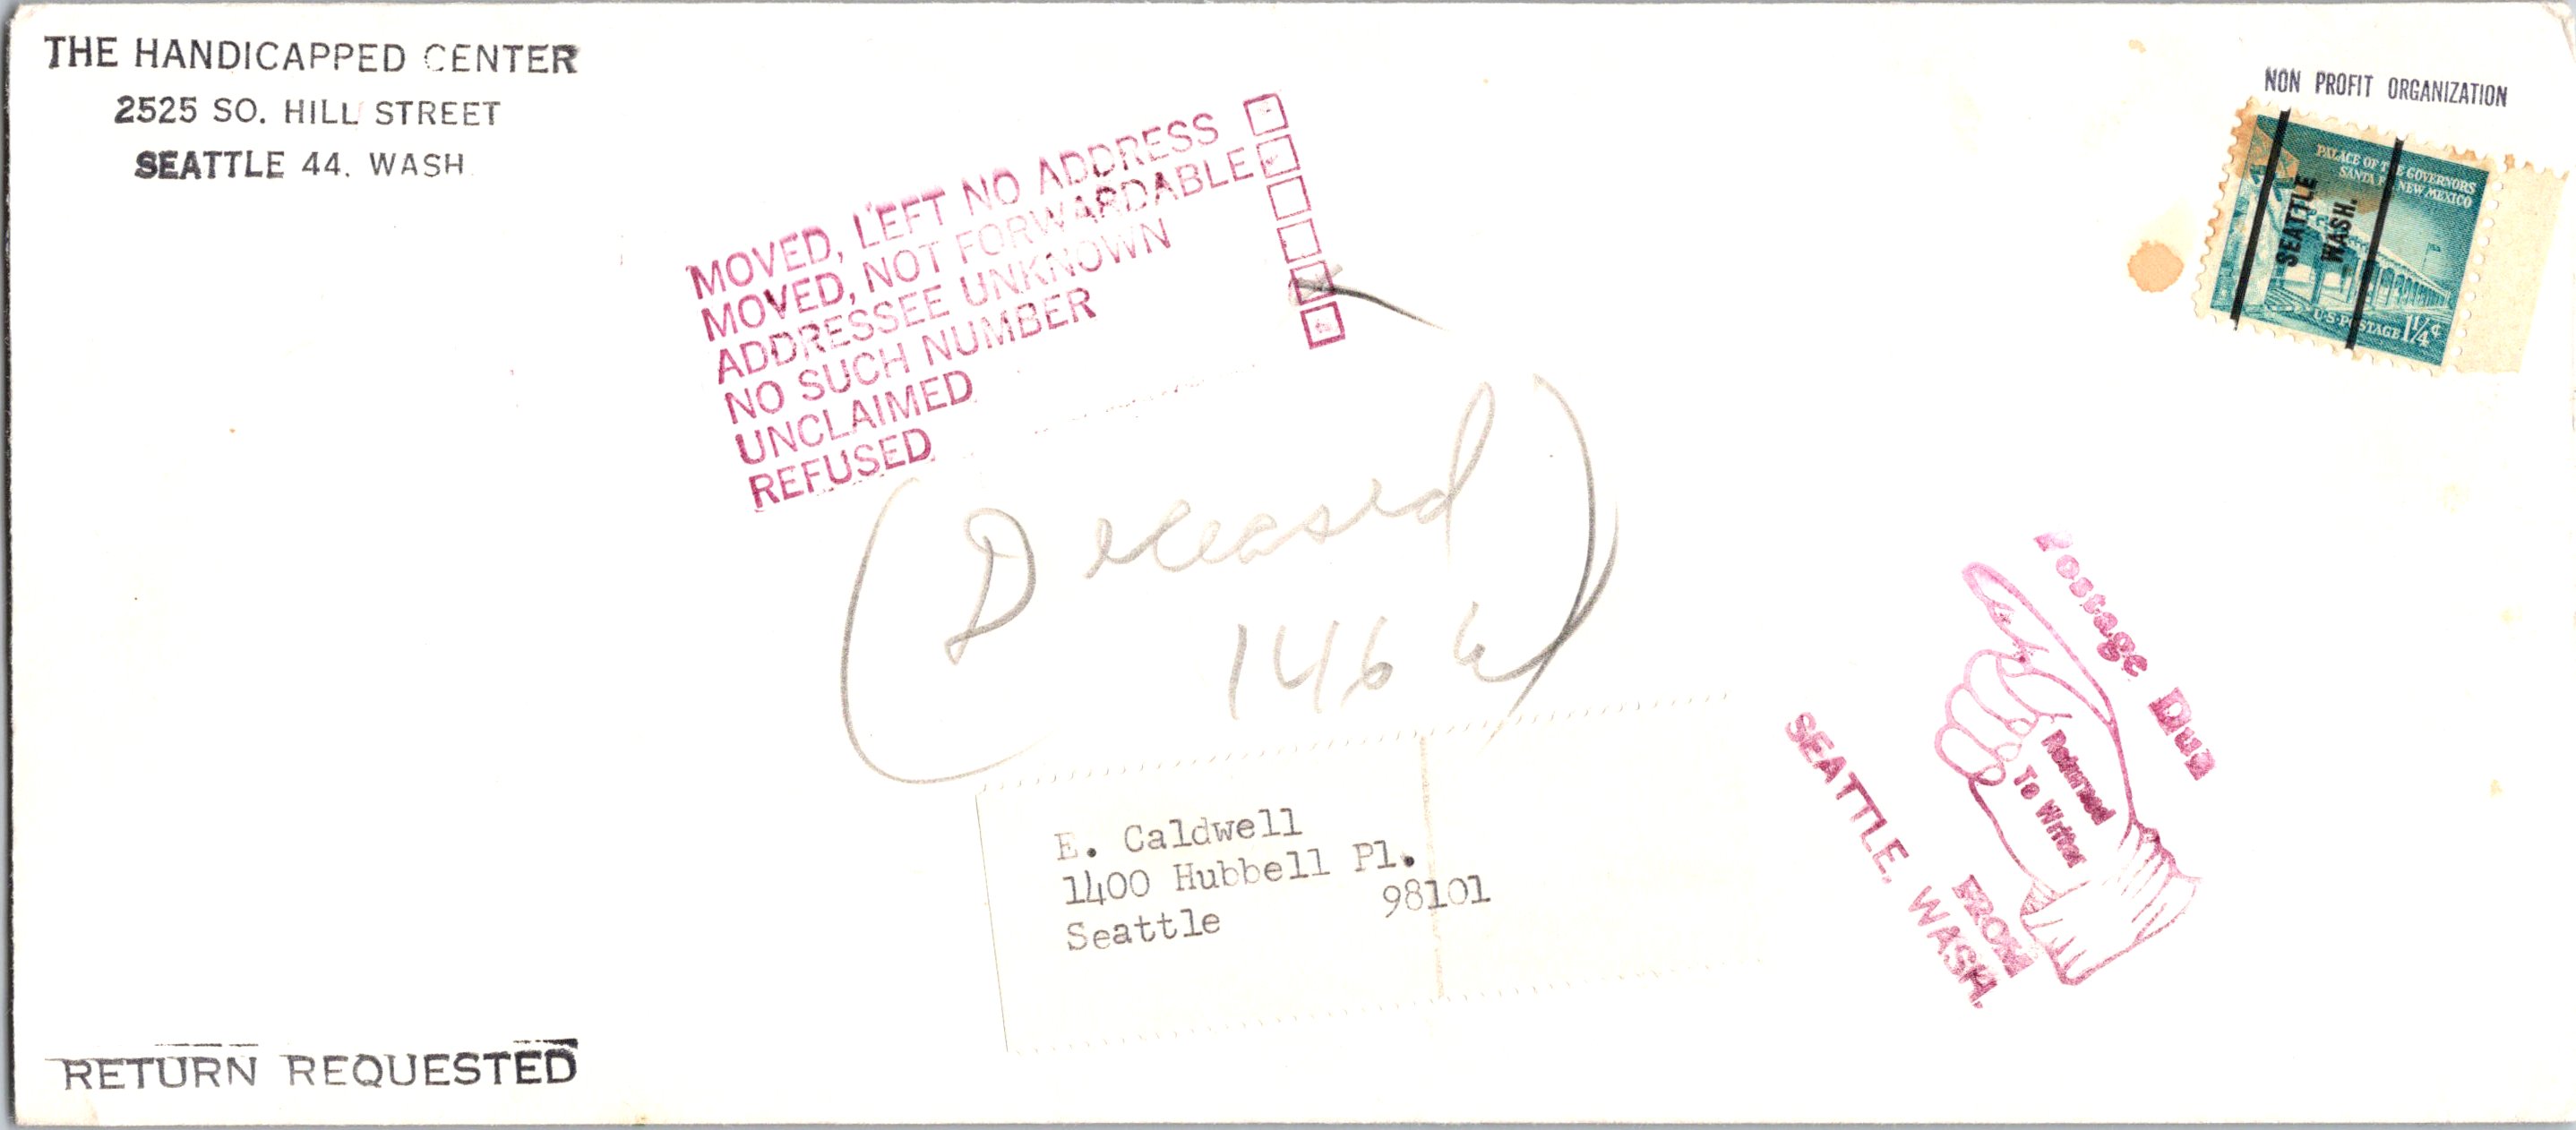 THE HANDICAPPED CENTER
2525 SO. HILL STREET
SEATTLE 44. WASH
NON PROFIT ORGANIZATION
PALACE OF THE GOVERNORS
SANTA FE NEW MEXICO
SEATTLE
WASH.
U.S. POSTAGE 1 1/4¢
MOVED, LEFT NO ADDRESS
MOVED, NOT FORWARDABLE
ADDRESSEE UNKNOWN
NO SUCH NUMBER
UNCLAIMED
REFUSED
(Deceased)
146
Postage Due
Returned
To Writer
FROM
SEATTLE, WASH.
E. Caldwell
1400 Hubbell Pl.
Seattle 98101
RETURN REQUESTED